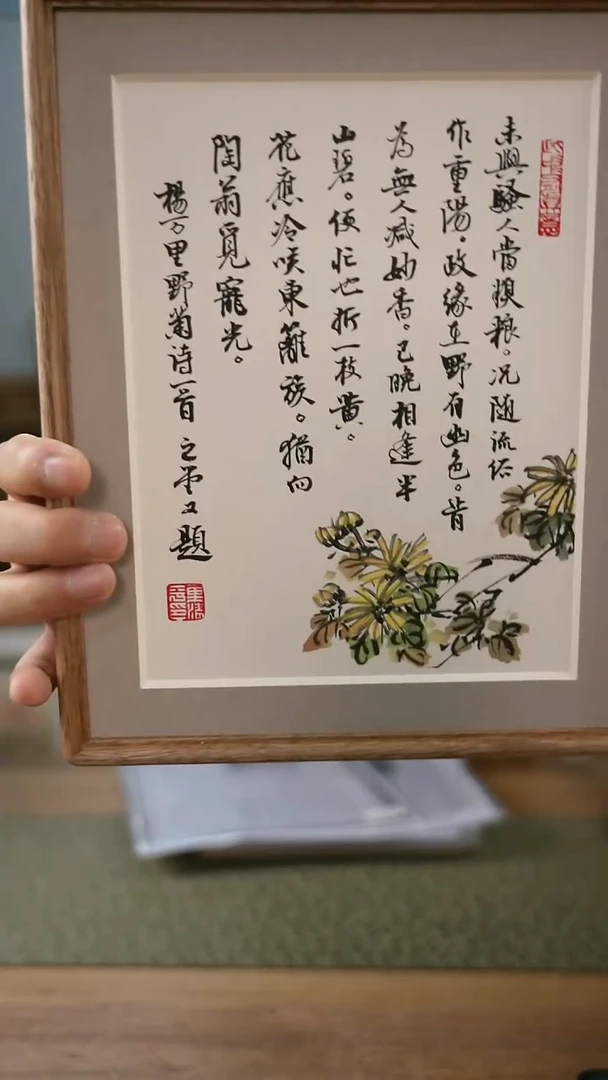 未與騷人當糗粮。況随流俗
作重陽。政緣在野有幽色。肯
為無人减妙香。已晚相逢半
山碧。便忙也折一枝黄。
花應冷咲東籬族。猶向
陶翁覓寵光。
楊万里野菊诗一首 之題